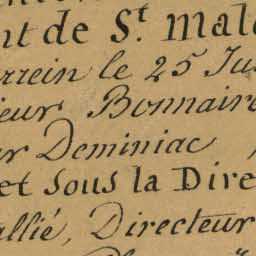 nt de S.t Malo
rrein le 25 Ju
ieur Bonnaire
ur Deminiac
et sous la Dire
allié, Directeur